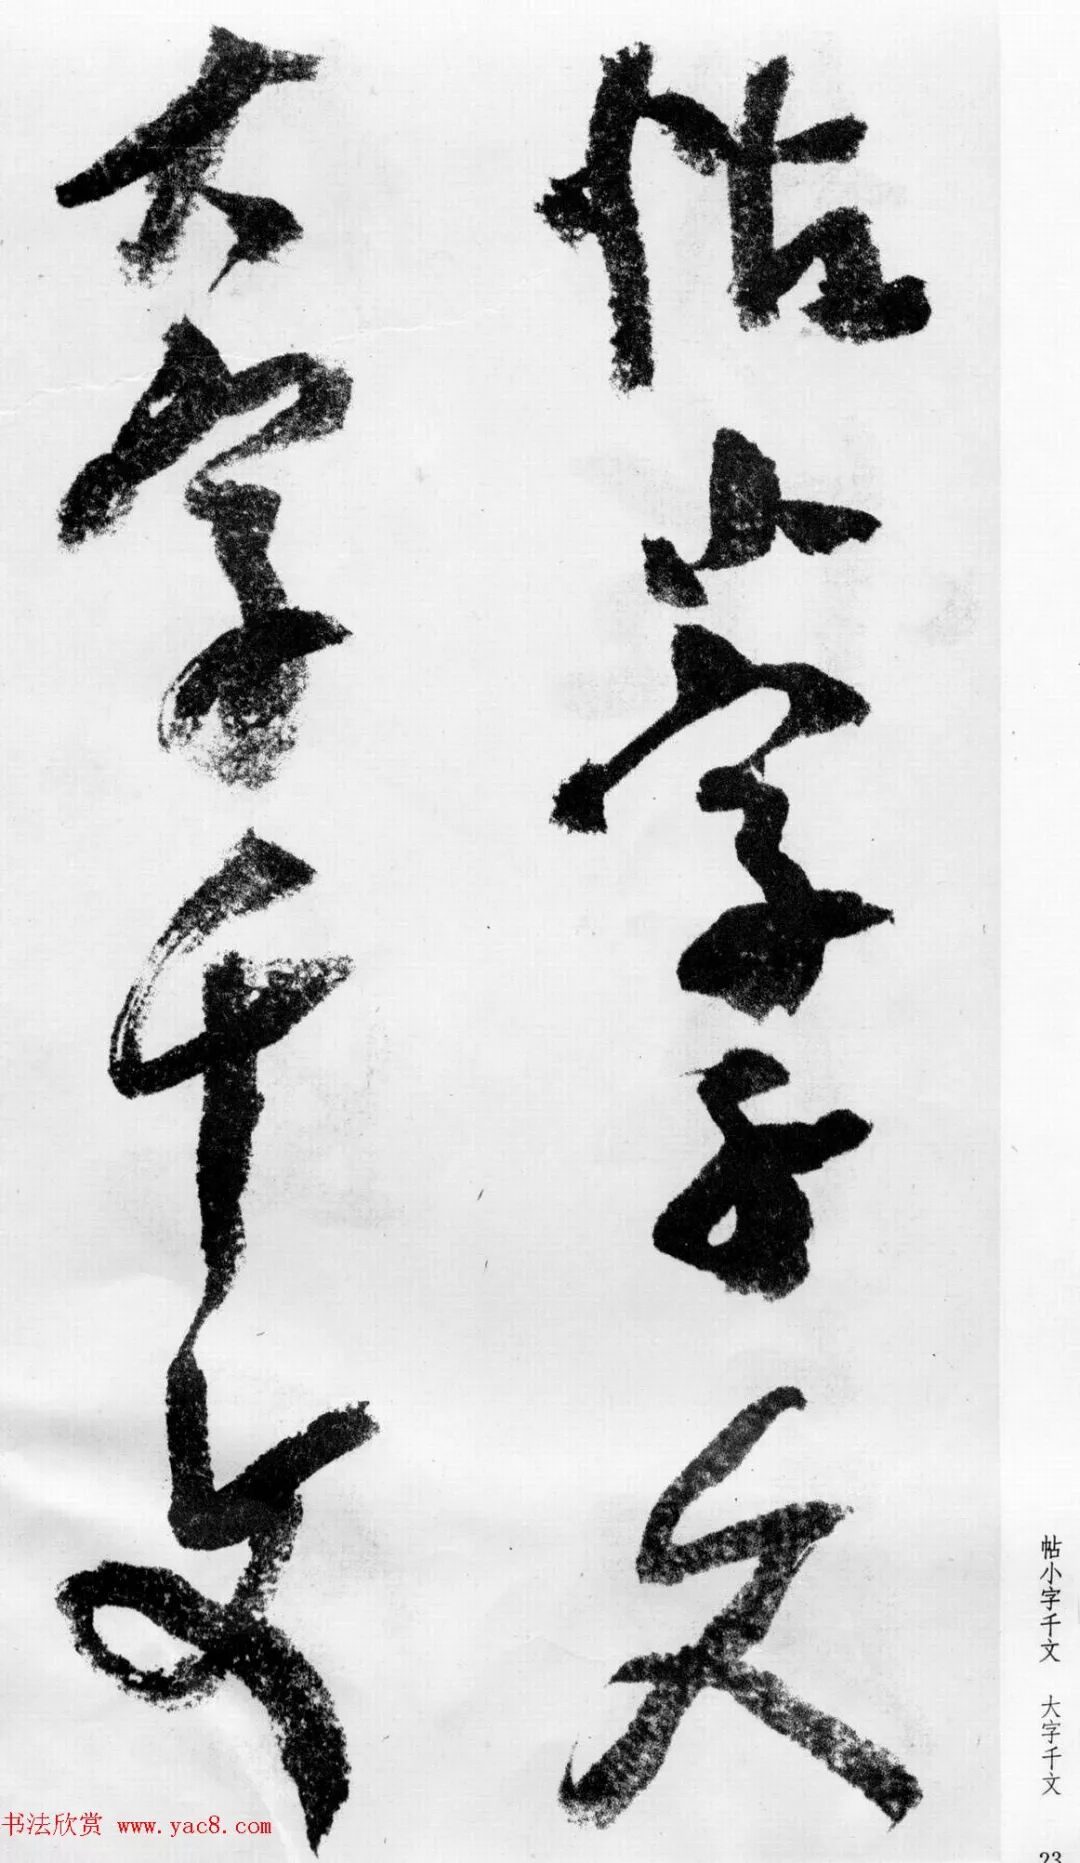 帖小字千文
大字千文
帖小字千文 大字千文
23
书法欣赏 www.yac8.com